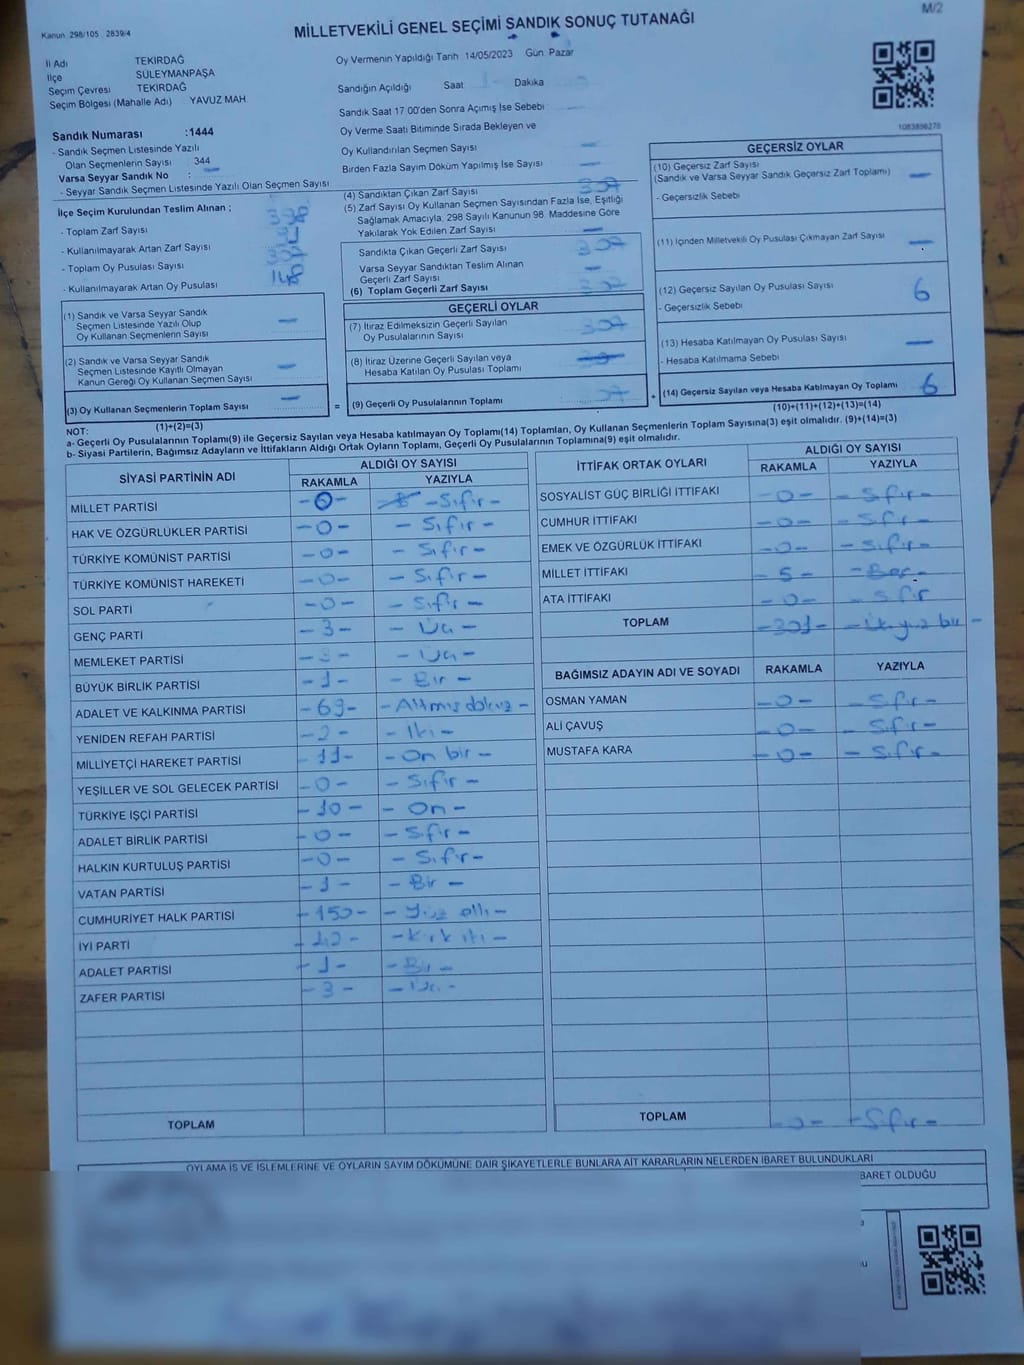 M/2
Kanun 298/105 2839/4
MİLLETVEKİLİ GENEL SEÇİMİ SANDIK SONUÇ TUTANAĞI
İl Adı TEKİRDAĞ
İlçe SÜLEYMANPAŞA
Seçim Çevresi TEKİRDAĞ
Seçim Bölgesi (Mahalle Adı) YAVUZ MAH
Sandık Numarası :1444
- Sandık Seçmen Listesinde Yazılı
Olan Seçmenlerin Sayısı 344
Varsa Seyyar Sandık No :
- Seyyar Sandık Seçmen Listesinde Yazılı Olan Seçmen Sayısı
İlçe Seçim Kurulundan Teslim Alınan ;
- Toplam Zarf Sayısı
- Kullanılmayarak Artan Zarf Sayısı
- Toplam Oy Pusulası Sayısı
- Kullanılmayarak Artan Oy Pusulası
(1) Sandık ve Varsa Seyyar Sandık
Seçmen Listesinde Yazılı Olup
Oy Kullanan Seçmenlerin Sayısı -
(2) Sandık ve Varsa Seyyar Sandık
Seçmen Listesinde Kayıtlı Olmayan
Kanun Gereği Oy Kullanan Seçmen Sayısı -
(3) Oy Kullanan Seçmenlerin Toplam Sayısı -
(1)+(2)=(3)
Oy Vermenin Yapıldığı Tarih 14/05/2023 Gün Pazar
Sandığın Açıldığı Saat Dakika
Sandık Saat 17 00'den Sonra Açılmış İse Sebebi
Oy Verme Saati Bitiminde Sırada Bekleyen ve
Oy Kullandırılan Seçmen Sayısı -
Birden Fazla Sayım Döküm Yapılmış İse Sayısı -
(4) Sandıktan Çıkan Zarf Sayısı 307
(5) Zarf Sayısı Oy Kullanan Seçmen Sayısından Fazla İse, Eşitliği
Sağlamak Amacıyla; 298 Sayılı Kanunun 98. Maddesine Göre
Yakılarak Yok Edilen Zarf Sayısı -
Sandıkta Çıkan Geçerli Zarf Sayısı 307
Varsa Seyyar Sandıktan Teslim Alınan
Geçerli Zarf Sayısı -
(6) Toplam Geçerli Zarf Sayısı 307
GEÇERLİ OYLAR
(7) İtiraz Edilmeksizin Geçerli Sayılan
Oy Pusulalarının Sayısı 307
(8) İtiraz Üzerine Geçerli Sayılan veya
Hesaba Katılan Oy Pusulası Toplamı
= (9) Geçerli Oy Pusulalarının Toplamı
1083856278
GEÇERSİZ OYLAR
(10) Geçersiz Zarf Sayısı
(Sandık ve Varsa Seyyar Sandık Geçersiz Zarf Toplamı) -
- Geçersizlik Sebebi
(11) İçinden Milletvekili Oy Pusulası Çıkmayan Zarf Sayısı -
(12) Geçersiz Sayılan Oy Pusulası Sayısı 6
- Geçersizlik Sebebi
(13) Hesaba Katılmayan Oy Pusulası Sayısı -
- Hesaba Katılmama Sebebi
+ (14) Geçersiz Sayılan veya Hesaba Katılmayan Oy Toplamı 6
(10)+(11)+(12)+(13)=(14)
NOT:
a- Geçerli Oy Pusulalarının Toplamı(9) ile Geçersiz Sayılan veya Hesaba katılmayan Oy Toplamı(14) Toplamları, Oy Kullanan Seçmenlerin Toplam Sayısına(3) eşit olmalıdır. (9)+(14)=(3)
b- Siyasi Partilerin, Bağımsız Adayların ve İttifakların Aldığı Ortak Oyların Toplamı, Geçerli Oy Pusulalarının Toplamına(9) eşit olmalıdır.
SİYASİ PARTİNİN ADI ALDIĞI OY SAYISI
RAKAMLA YAZIYLA
MİLLET PARTİSİ -0- -Sıfır-
HAK VE ÖZGÜRLÜKLER PARTİSİ -0- -Sıfır-
TÜRKİYE KOMÜNİST PARTİSİ -0- -Sıfır-
TÜRKİYE KOMÜNİST HAREKETİ -0- -Sıfır-
SOL PARTİ -0- -Sıfır-
GENÇ PARTİ -3- -Üç-
MEMLEKET PARTİSİ -3- -Üç-
BÜYÜK BİRLİK PARTİSİ -1- -Bir-
ADALET VE KALKINMA PARTİSİ -69- -Altmış dokuz-
YENİDEN REFAH PARTİSİ -2- -İki-
MİLLİYETÇİ HAREKET PARTİSİ 11- -On bir-
YEŞİLLER VE SOL GELECEK PARTİSİ -0- -Sıfır-
TÜRKİYE İŞÇİ PARTİSİ -10- -On-
ADALET BİRLİK PARTİSİ -0- -Sıfır-
HALKIN KURTULUŞ PARTİSİ -0- -Sıfır-
VATAN PARTİSİ -1- -Bir-
CUMHURİYET HALK PARTİSİ -150- -Yüz elli-
İYİ PARTİ -42- -Kırk iki-
ADALET PARTİSİ -1- -Bir-
ZAFER PARTİSİ -3- -Üç-
TOPLAM
İTTİFAK ORTAK OYLARI ALDIĞI OY SAYISI
RAKAMLA YAZIYLA
SOSYALİST GÜÇ BİRLİĞİ İTTİFAKI -0- -Sıfır-
CUMHUR İTTİFAKI -0- -Sıfır-
EMEK VE ÖZGÜRLÜK İTTİFAKI -0- -Sıfır-
MİLLET İTTİFAKI -5- -Beş-
ATA İTTİFAKI -0- -Sıfır
TOPLAM -301-
BAĞIMSIZ ADAYIN ADI VE SOYADI RAKAMLA YAZIYLA
OSMAN YAMAN -0- -Sıfır-
ALİ ÇAVUŞ -0- -Sıfır-
MUSTAFA KARA -0- -Sıfır-
TOPLAM -0- -Sıfır-
OYLAMA İŞ VE İŞLEMLERİNE VE OYLARIN SAYIM DÖKÜMÜNE DAİR ŞİKAYETLERLE BUNLARA AİT KARARLARIN NELERDEN İBARET BULUNDUKLARI
BARET OLDUĞU